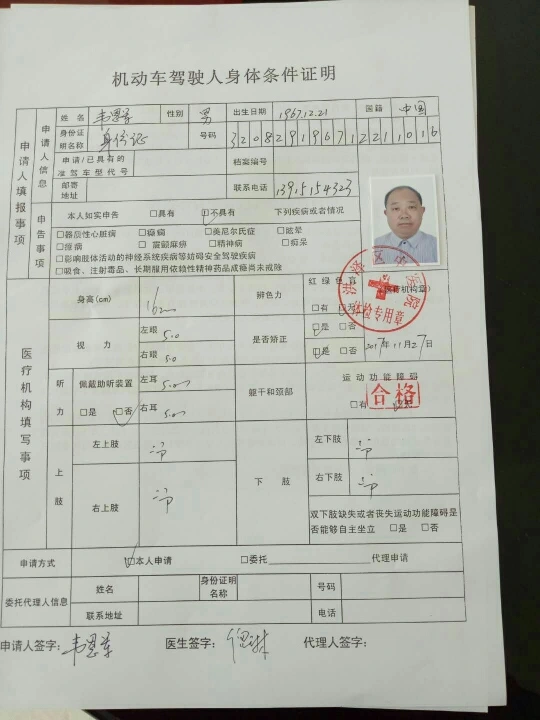 机动车驾驶人身体条件证明
申请人填报事项
申请人信息
姓名 韦恩 性别 男 出生日期 1967.12.21 国籍 中国
身份证明名称 身份证 号码 320829196712211016
申请/已具有的准驾车型代号 档案编号
邮寄地址 联系电话 13915154323
申告事项
本人如实申告 □具有 □不具有 下列疾病或者情况
□器质性心脏病 □癫痫 □美尼尔氏症 □眩晕
□癔病 □震颤麻痹 □精神病 □痴呆
□影响肢体活动的神经系统疾病等妨碍安全驾驶疾病
□吸食、注射毒品、长期服用依赖性精神药品成瘾尚未戒除
医疗机构填写事项
身高(cm) 辨色力 红绿色盲 □有
(医疗机构章)
体检专用章
视力 左眼 5.0 是否矫正 □是 □否
右眼 5.0 □是 □否
2017年11月27日
听力 佩戴助听装置 □是 □否 左耳 右耳
躯干和颈部 运动功能障碍 □有
合格
上肢 左上肢 右上肢
下肢 左下肢 右下肢
双下肢缺失或者丧失运动功能障碍是否能够自主坐立 □是 □否
申请方式 □本人申请 □委托 代理申请
委托代理人信息 姓名 身份证明名称 号码
联系地址 电话
申请人签字：韦恩 医生签字： 代理人签字：